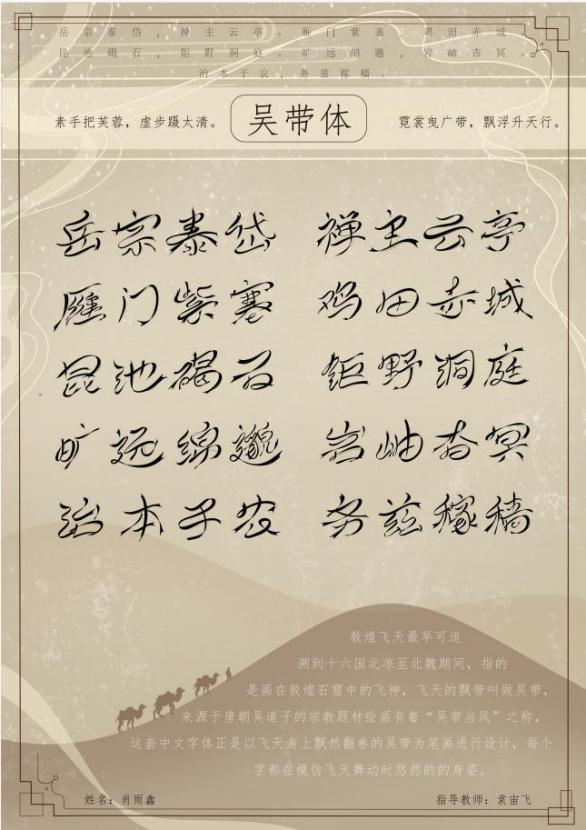 岳宗泰岱，禅主云亭。雁门紫塞，鸡田赤城。
昆池碣石，钜野洞庭。旷远绵邈，岩岫杳冥。
治本于农，务兹稼穑。
素手把芙蓉，虚步蹑太清。 吴带体 霓裳曳广带，飘浮升天行。
岳宗泰岱 禅主云亭
雁门紫塞 鸡田赤城
昆池碣石 钜野洞庭
旷远绵邈 岩岫杳冥
治本于农 务兹稼穑
敦煌飞天最早可追
溯到十六国北凉至北魏期间，指的
是画在敦煌石窟中的飞神，飞天的飘带叫做吴带，
来源于唐朝吴道子的宗教题材绘画有着“吴带当风”之称，
这套中文字体正是以飞天身上飘然翻卷的吴带为笔画进行设计，每个
字都在模仿飞天舞动时悠然的的身姿。
姓名：肖雨鑫 指导教师：袁宙飞